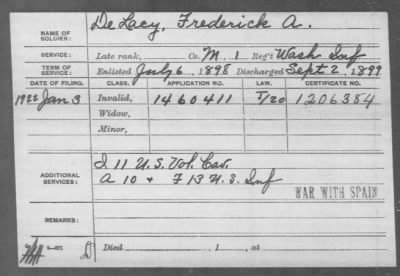 NAME OF SOLDIER: De Lacy, Frederick A.
SERVICE: Late rank, Co. M. 1 Reg't Wash Inf
TERM OF SERVICE: Enlisted July 6, 1898 Discharged Sept. 2, 1899
DATE OF FILING. CLASS. APPLICATION NO. LAW. CERTIFICATE NO.
1922 Jan 3 Invalid, 1460411 1206384
Widow,
Minor,
ADDITIONAL SERVICES: I 11 U.S. Vol. Cav.
A 10 + F 13 U.S. Inf
WAR WITH SPAIN
REMARKS:
Died , 1 , at